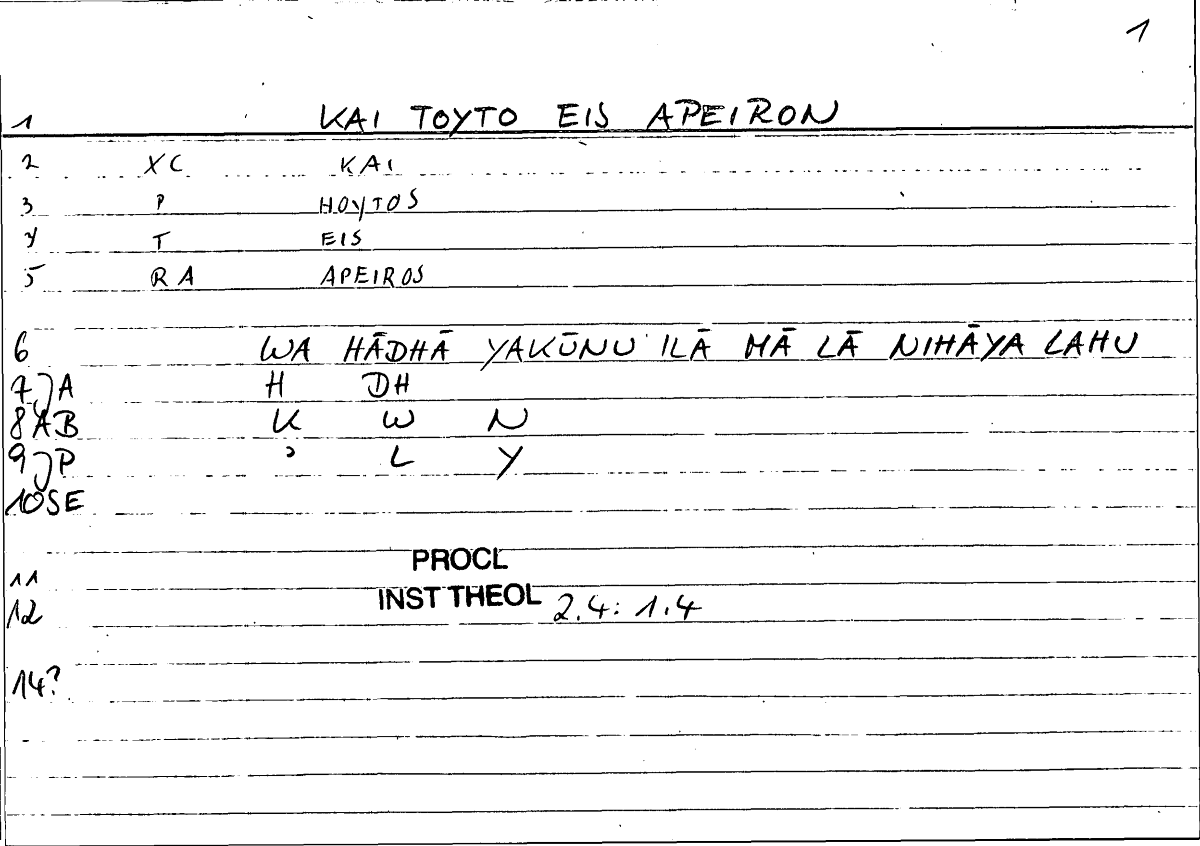 1
1 KAI TOYTO EIS APEIRON
2 XC KAI
3 P HOYTOS
4 T EIS
5 RA APEIROS
6 WA HĀDHĀ YAKŪNU ILĀ MĀ LĀ NIHĀYA LAHU
7JA H DH
8AB K W N
9JP ʾ L Y
10SE
11 PROCL
12 INST THEOL 2.4: 1.4
14?